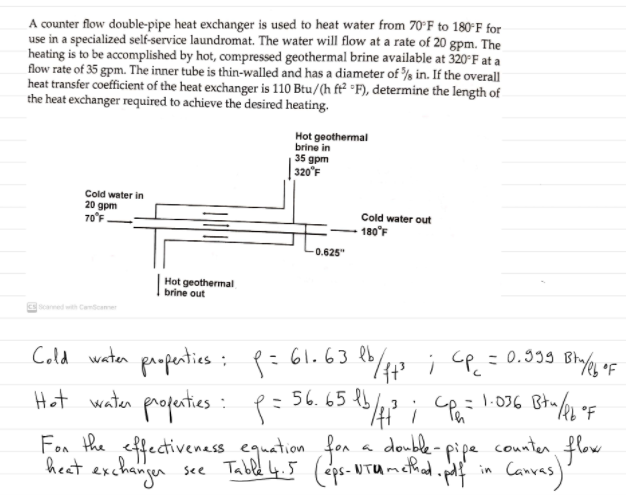 A counter flow double-pipe heat exchanger is used to heat water from 70°F to 180°F for
use in a specialized self-service laundromat. The water will flow at a rate of 20 gpm. The
heating is to be accomplished by hot, compressed geothermal brine available at 320°F at a
flow rate of 35 gpm. The inner tube is thin-walled and has a diameter of ⅝ in. If the overall
heat transfer coefficient of the heat exchanger is 110 Btu/(h ft² °F), determine the length of
the heat exchanger required to achieve the desired heating.
Hot geothermal
brine in
35 gpm
320°F
Cold water in
20 gpm
70°F
Cold water out
180°F
0.625"
Hot geothermal
brine out
CS Scanned with CamScanner
Cold water properties : ρ = 61.63 lb/ft³ ; Cp_c = 0.999 Btu/lb °F
Hot water properties : ρ = 56.65 lb/ft³ ; Cp_h = 1.036 Btu/lb °F
For the effectiveness equation for a double-pipe counter flow
heat exchanger see Table 4.5 (eps-NTU method.pdf in Canvas)